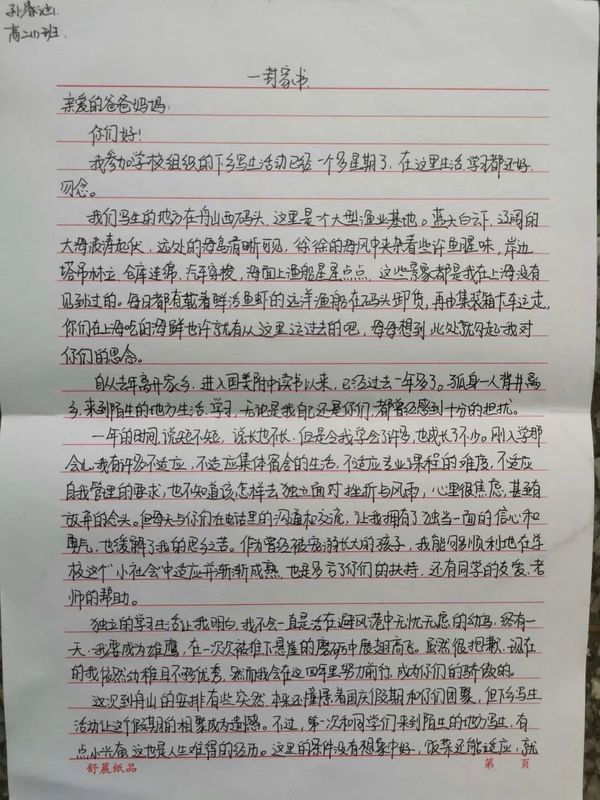 孙春沁
高二(1)班.
一封家书.
亲爱的爸爸妈妈:
你们好!
我参加学校组织的下乡写生活动已经一个多星期了, 在这里生活、学习都还好,
勿念。
我们写生的地方在舟山西码头, 这里是个大型渔业基地。蓝天白云下, 辽阔的
大海波涛起伏, 远处的海岛清晰可见, 徐徐的海风中夹杂着些许鱼腥味, 岸边
塔吊林立, 仓库连绵, 汽车穿梭, 海面上渔船星星点点, 这些景象都是我在上海没有
见到过的。每日都有载着鲜活鱼虾的远洋渔船在码头卸货, 再由集装箱卡车运走,
你们在上海吃的海鲜也许就有从这里运过去的吧, 每每想到此处就勾起我对
你们的思念。
自从去年离开家乡, 进入国美附中读书以来, 已经过去一年多了。孤身一人背井离
乡, 来到陌生的地方生活、学习, 无论是我自己还是你们, 都曾经感到十分的担忧。
一年的时间, 说短不短, 说长也不长, 但是令我学会许多, 也成长了不少。刚入学那
会儿, 我有许多不适应, 不适应集体宿舍的生活, 不适应专业课程的难度, 不适应
自我管理的要求, 也不知道该怎样去独立面对挫折与风雨, 心里很焦虑, 甚至有
放弃的念头。但每天与你们在电话里的沟通和交流, 让我拥有了独当一面的信心和
勇气, 也缓解了我的思乡之苦。作为曾经被宠溺长大的孩子, 我能够顺利地在学
校这个小社会中适应并渐渐成熟, 也是多亏了你们的扶持, 还有同学的友爱、老
师的帮助。
独立的学习生活让我明白, 我不会一直是活在避风港中无忧无虑的幼鸟, 终有一
天, 我要成为雄鹰, 在一次次被推下悬崖的磨砺中展翅高飞。虽然很抱歉, 现在
的我依然幼稚且不够优秀, 然而我会在这四年里努力前行, 成为你们的骄傲的。
这次到舟山的安排有些突然, 本来还憧憬着国庆假期和你们团聚, 但下乡写生
活动让这个假期的相聚成为遗憾。不过, 第一次和同学们来到陌生的地方写生, 有
点小兴奋, 这也是人生难得的经历。这里的条件没有想象中好, 饭菜还能适应, 就
舒晨纸品 第 页